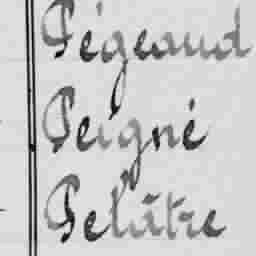 Pégeaud
Peigné
Pelâtre